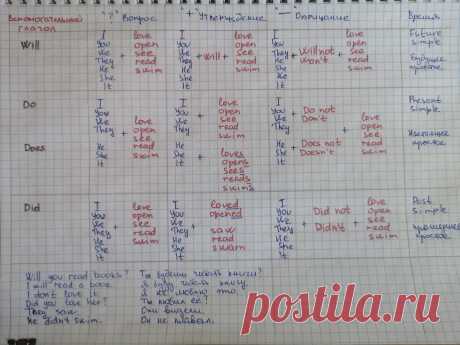 Вспомогательный глагол "?" Вопрос "+" Утверждение "—" Отрицание Время
Will
I I I Future
You love You love You love simple
We open We open We Will not open
They + see They + Will + see They + won't + see Будущее
He read He read He read простое
She swim She swim She swim
It It It
Do
I I love I Present
You love You open You Do not simple
We open We + see We + Don't love
They + see They read They open
swim + see
Does
He read He loves He Does not read
She swim She + opens She + Doesn't swim простое
It It sees It
reads
swims
Did
I I loved I Past
You love You opened You love simple
We open We We Did not open
They + see They + saw They + Didn't + see
He read He read He read простое
She swim She swam She swim
It It It
Will you read books? Ты будешь читать книги?
I will read a book. Я буду читать книгу.
I don't love it. Я не люблю это.
Did you love her? Ты любил её?
They saw. Они видели.
He didn't swim. Он не плавал.
postila.ru